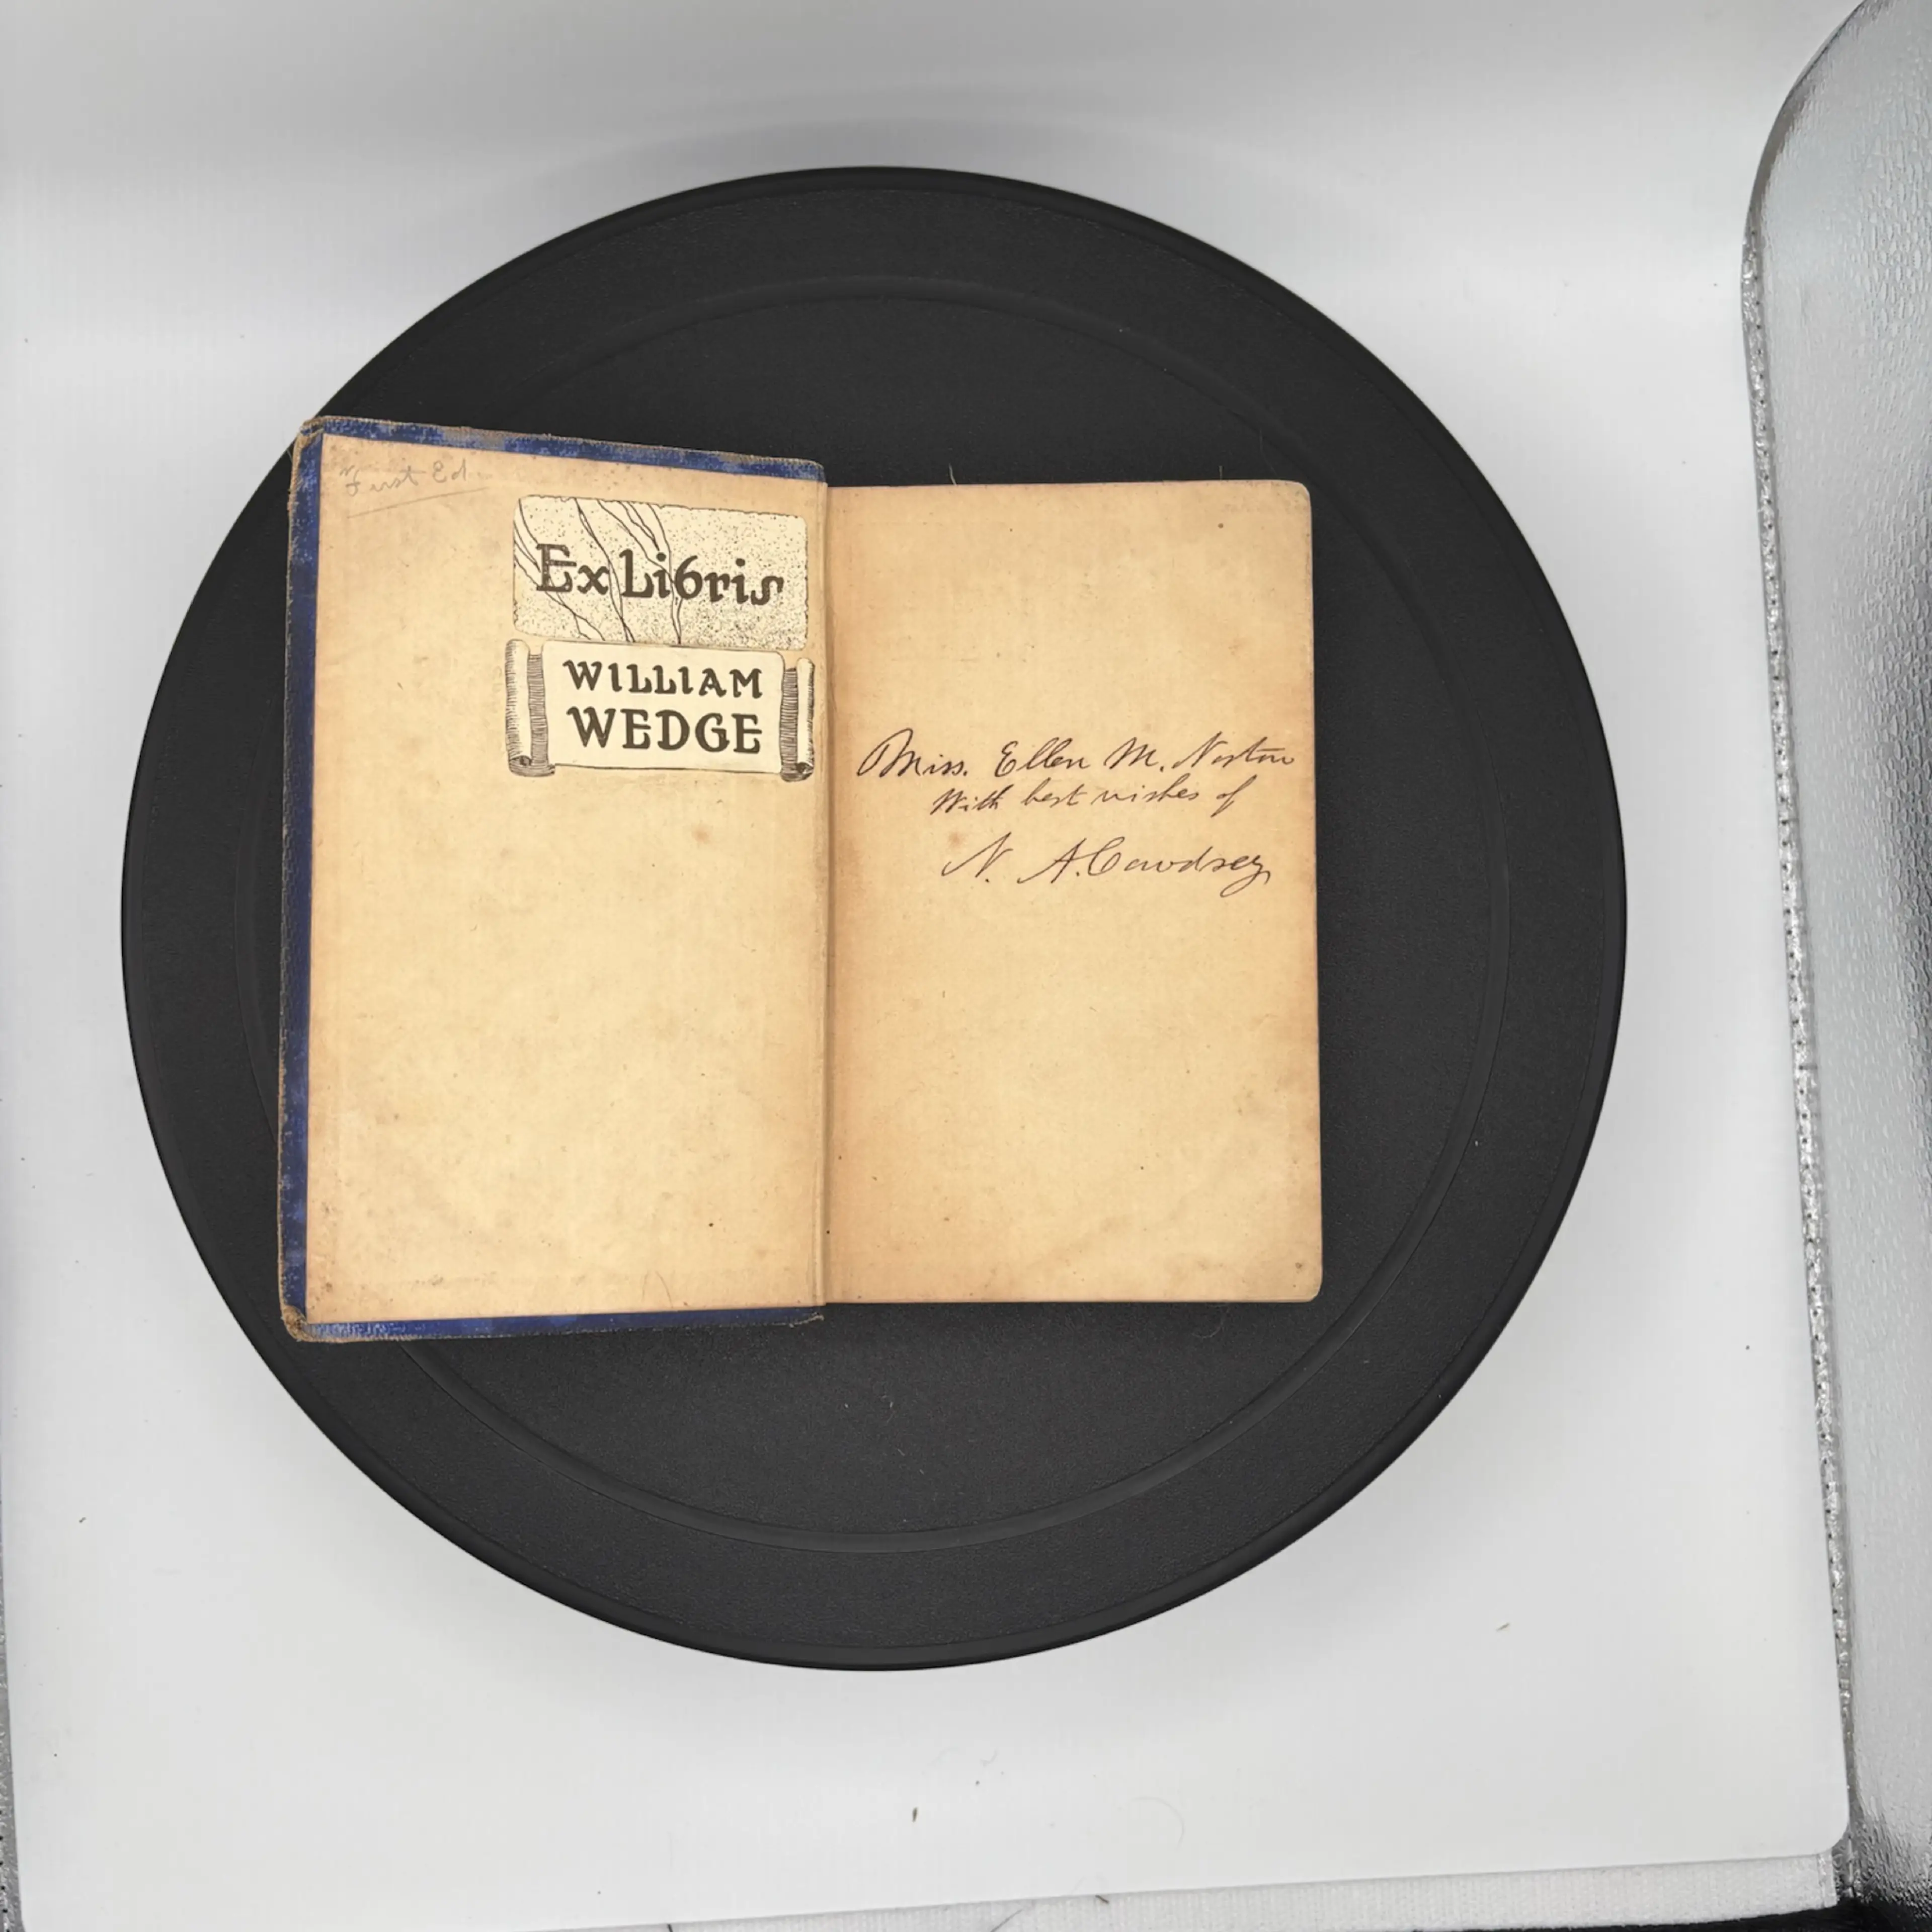 First Ed.
Ex Libris
WILLIAM
WEDGE
Miss. Ellen M. Norton
With best wishes of
N. A. Cowdrey